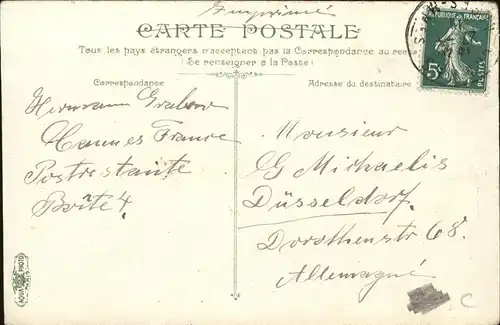 Imprimé
CARTE POSTALE
Tous les pays étrangers n'acceptent pas la Correspondance au recto
(Se renseigner à la Poste)
Correspondance
Adresse du destinataire
REPUBLIQUE FRANÇAISE
5c
POSTES
Hermann Grabow
Cannes France
Postrestante
Boîte 4.
Monsieur
G Michaelis
Düsseldorf.
Dorothenstr 68.
Allemagne
AQUA PHOTO
C